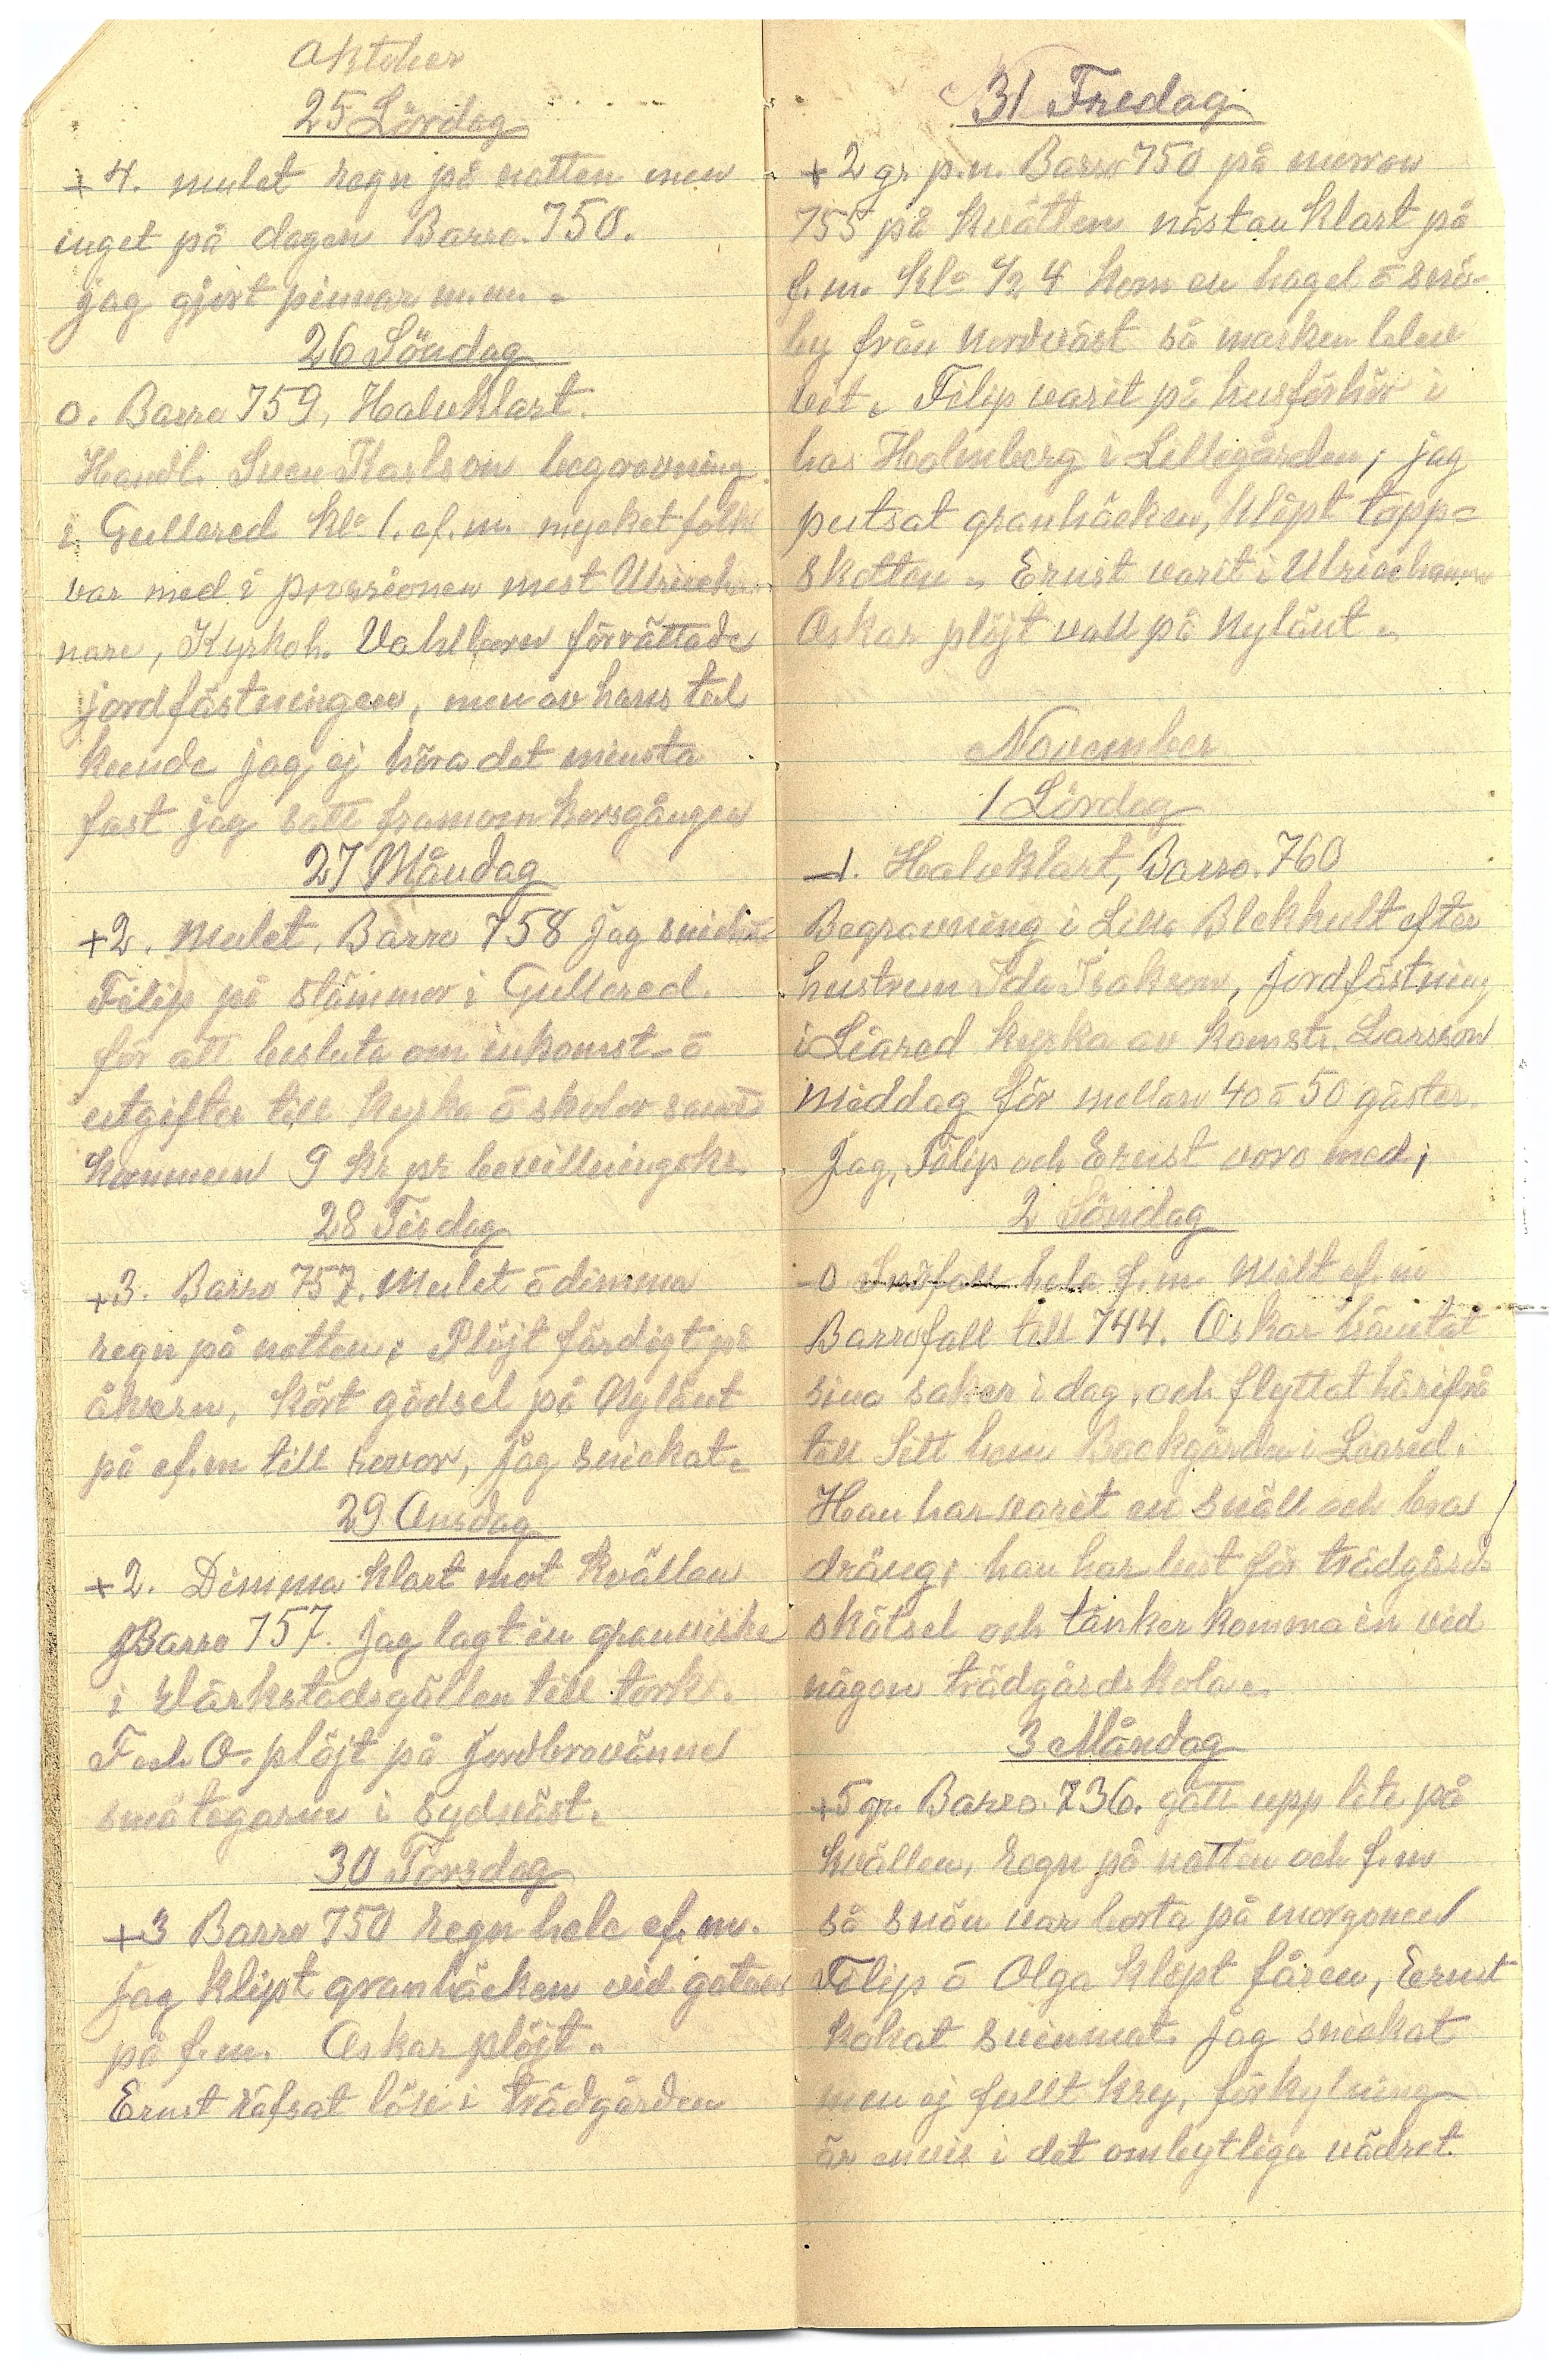 Oktober
25 Lördag
+4. mulet regn på natten men
inget på dagen Barro. 750.
jag gjort pinnar m.m. -
26 Söndag
0. Barro 759, Halvklart.
Handl. Sven Karlson begravning
i Gullered kl. 1. ef. m. mycket folk
var med i prosesionen mest Ulriceha-
nare, Kyrkoh. Vahlborn förrättade
jordfästningen, men av hans tal
kunde jag ej höra det minsta
fast jag satt framom korsgången
27 Måndag
+2. Mulet, Barro 758 jag snickat
Filip på stämmor i Gullered.
för att besluta om inkomst- o
utgifter till kyrka o skolor samt
kommun 9 kr pr bevillningskr.
28 Tisdag
+3. Barro 757. Mulet o dimma
regn på natten, Plöjt färdigt på
åkrern, kört gödsel på Nylänt
på ef.m till rovor, jag snickat-
29 Onsdag
+2. Dimma klart mot kvällen
Barro 757. jag lagt in granvirke
i Värkstadsgällen till tork.
F och O. plöjt på Jordbrovänne
småtegarne i sydväst.
30 Torsdag
+3 Barro 750 Regn hele ef. m.
jag klipt granhäcken vid gatan
på f.m. Oskar plöjt.
Ernst räfsat löv i trädgården
31 Fredag
+2 gr. p.n. Barro 750 på morron
755 på kvällen nästan klart på
f.m. Kl. 1/2 4 kom en hagel o snö-
by från Nordväst så marken blev
vit. Filip varit på husförhör i
hos Holmberg i Lillegården, jag
putsat granhäcken, klipt topp=
skotten - Ernst varit i Ulricehamn
Oskar plöjt vall på Nylänt.
November
1 Lördag
-1. Halvklart, Barro. 760
Begravning i Lilla Blekhult efter
hustrun Ida Isakson, Jordfästning
i Liared kyrka av komstr. Larsson
Middag för mellan 40 o 50 gäster.
Jag, Filip och Ernst voro med;
2 Söndag
-0 Snöfall hela f.m. Milt ef. m
Barrofall till 744. Oskar hämtat
sina saker i dag, och flyttat härifrå
till sitt hem Bockgården i Liared.
Han har varit en snäll och bra
dräng, han har lust för trädgårds
skötsel och tänker komma in vid
någon trädgårdskola.
3 Måndag
+5 gr. Barro. 736. gått upp lite på
kvällen, Regn på natten och f.m
så snön var borta på morgonen
Filip o Olga klipt fåren, Ernst
kokat svinmat. jag snickat
men ej fullt kry, förkylning
är envis i det ombytliga vädret.